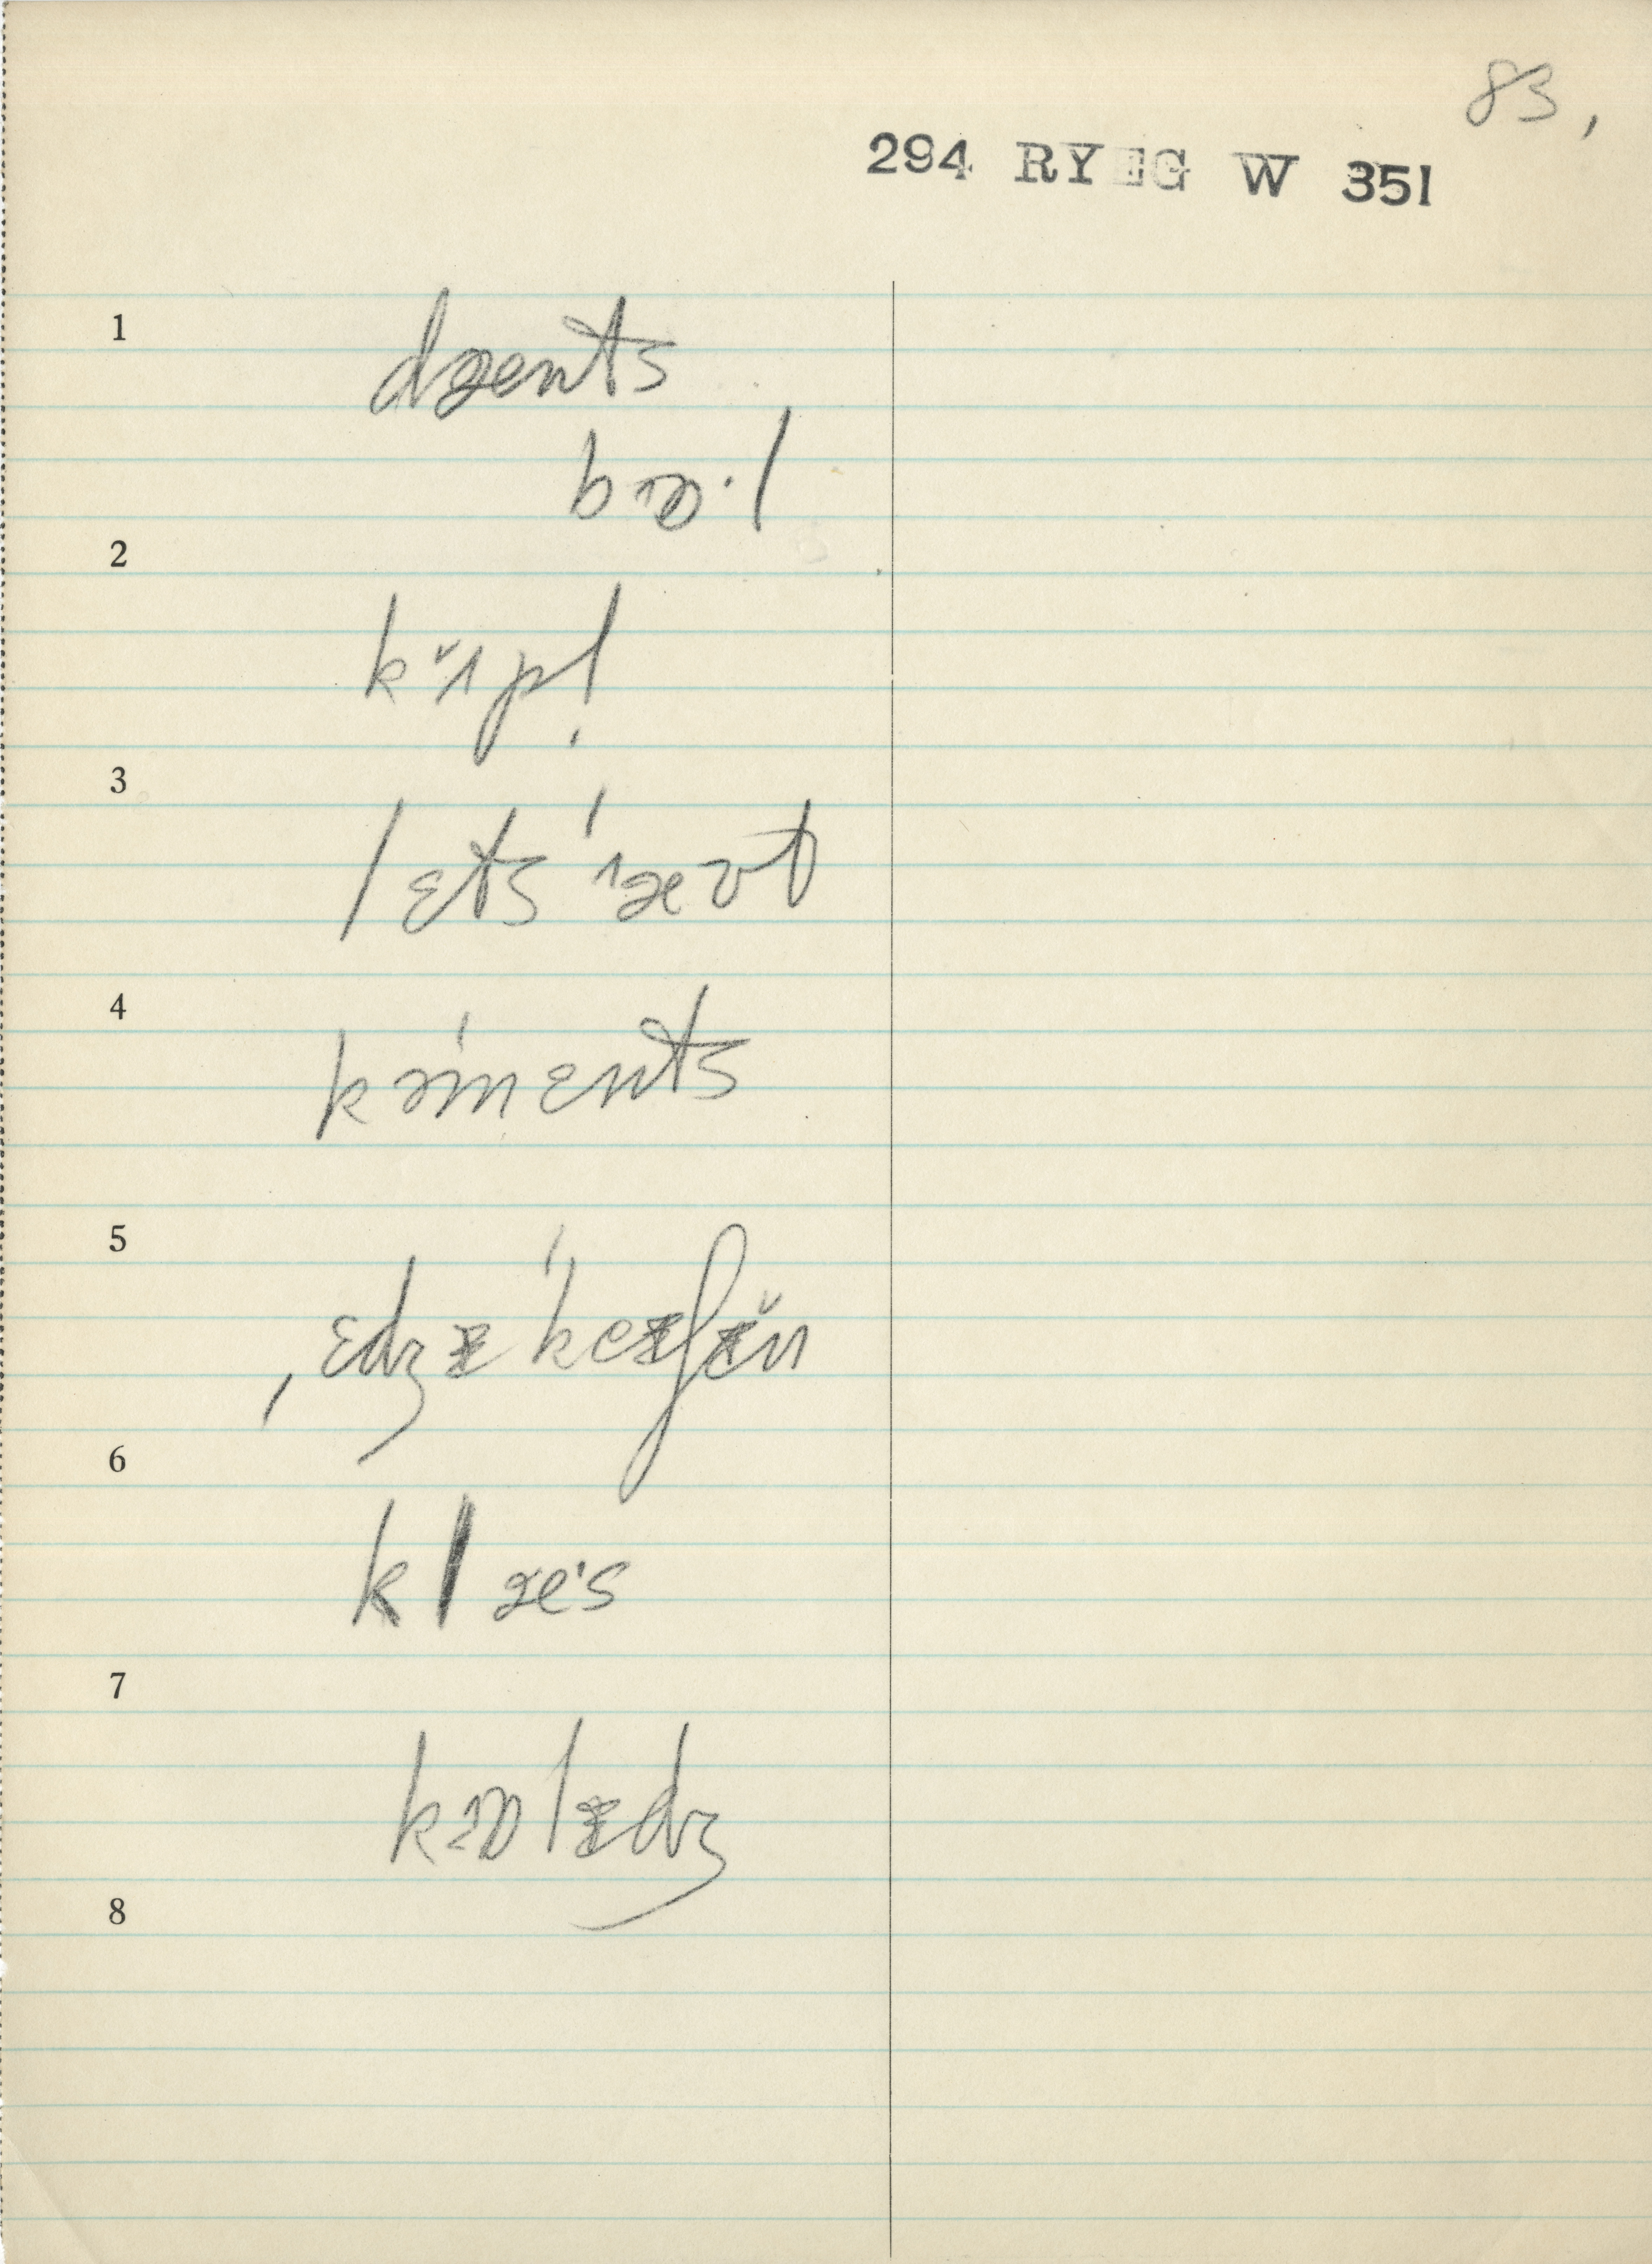 83,
294 RYEG W 351
1
dzænts
bɒ·l
2
kr̆ɪpl̩
3
lɛts ˈɪæʊt
4
kəˈmɛnts
5
ˌɛdʒᵻˈkeᵻʃᵻ̆n
6
klæ·s
7
kɒlᵻdʒ
8